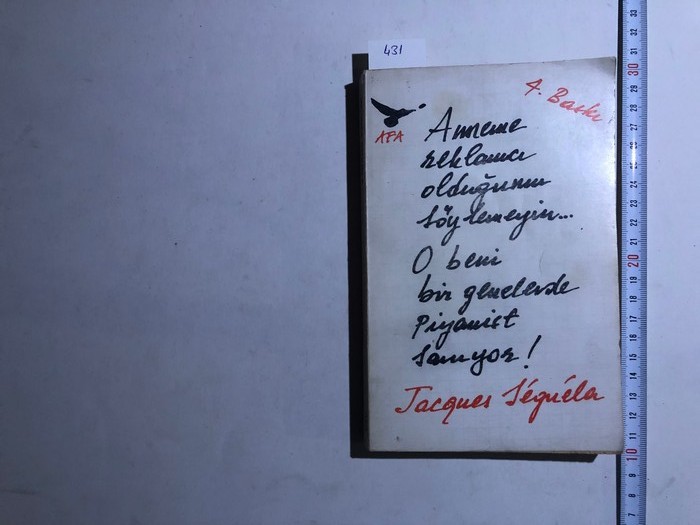 431
4. Baskı
AFA
Anneme
reklamcı
olduğumu
söylemeyin...
O beni
bir genelevde
Piyanist
sanıyor!
Jacques Séguéla
33
32
31
30
29
28
27
26
25
24
23
22
21
20
19
18
17
16
15
14
13
12
11
10
9
8
7